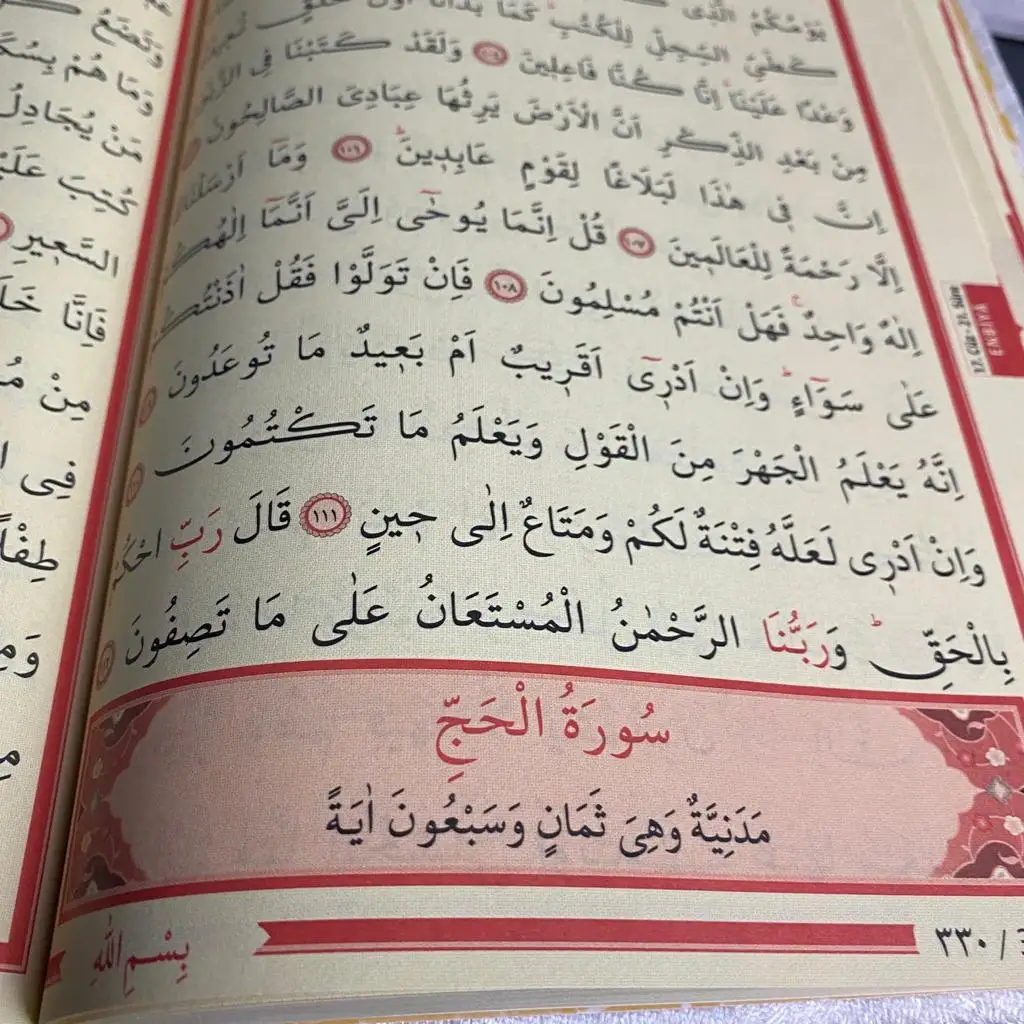 يَوْمُكُمُ الَّذِى
كَطَىِّ السِّجِلِّ لِلْكُتُبِ كَمَا بَدَاْنَا اَوَّلَ خَلْقٍ
وَعْدًا عَلَيْنَا اِنَّا كُنَّا فَاعِلِينَ ١٠٤ وَلَقَدْ كَتَبْنَا فِى
مِنْ بَعْدِ الذِّكْرِ اَنَّ الْاَرْضَ يَرِثُهَا عِبَادِىَ الصَّالِحُونَ
اِنَّ فِى هٰذَا لَبَلَاغًا لِقَوْمٍ عَابِدِينَ ١٠٦ وَمَٓا اَرْسَلْنَاكَ
اِلَّا رَحْمَةً لِلْعَالَمِينَ ١٠٧ قُلْ اِنَّمَا يُوحٰٓى اِلَىَّ اَنَّمَٓا اِلٰهُكُمْ
اِلٰهٌ وَاحِدٌ فَهَلْ اَنْتُمْ مُسْلِمُونَ ١٠٨ فَاِنْ تَوَلَّوْا فَقُلْ اٰذَنْتُكُمْ
عَلٰى سَوَٓاءٍ وَاِنْ اَدْرِٓى اَقَرِيبٌ اَمْ بَعِيدٌ مَا تُوعَدُونَ
اِنَّهُ يَعْلَمُ الْجَهْرَ مِنَ الْقَوْلِ وَيَعْلَمُ مَا تَكْتُمُونَ
وَاِنْ اَدْرِى لَعَلَّهُ فِتْنَةٌ لَكُمْ وَمَتَاعٌ اِلٰى حِينٍ ١١١ قَالَ رَبِّ احْكُمْ
بِالْحَقِّ وَرَبُّنَا الرَّحْمٰنُ الْمُسْتَعَانُ عَلٰى مَا تَصِفُونَ
سُورَةُ الْحَجِّ
مَدَنِيَّةٌ وَهِىَ ثَمَانٍ وَسَبْعُونَ اٰيَةً
بِسْمِ اللّٰهِ
٣٣٠ /
17. Cüz - 21. Sûre
ENBİYÂ
وَتَضَعُ
وَمَا هُمْ
مَنْ يُجَادِلُ
كُتِبَ عَلَيْهِ
السَّعِيرِ
فَاِنَّا
مِنْ
فِى